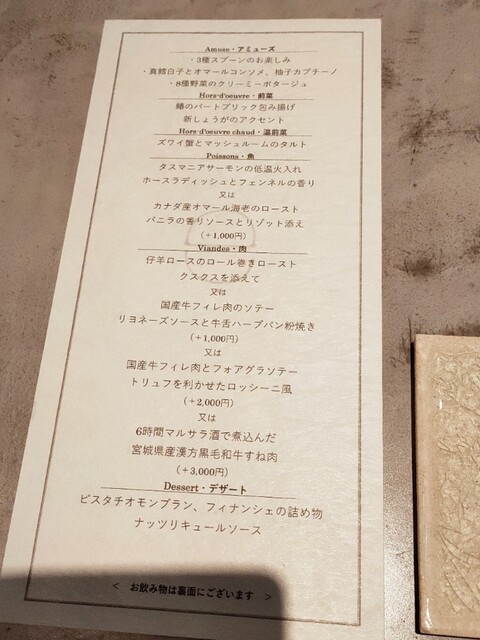 Amuse・アミューズ
・3種スプーンのお楽しみ
・真鱈白子とオマールコンソメ、柚子カプチーノ
・8種野菜のクリーミーポタージュ
Hors-d'oeuvre・前菜
鰆のパートブリック包み揚げ
新しょうがのアクセント
Hors-d'oeuvre chaud・温前菜
ズワイ蟹とマッシュルームのタルト
Poissons・魚
タスマニアサーモンの低温火入れ
ホースラディッシュとフェンネルの香り
又は
カナダ産オマール海老のロースト
バニラの香りソースとリゾット添え
(+1,000円)
Viandes・肉
仔羊ロースのロール巻きロースト
クスクスを添えて
又は
国産牛フィレ肉のソテー
リヨネーズソースと牛舌ハーブパン粉焼き
(+1,000円)
又は
国産牛フィレ肉とフォアグラソテー
トリュフを利かせたロッシーニ風
(+2,000円)
又は
6時間マルサラ酒で煮込んだ
宮城県産漢方黒毛和牛すね肉
(+3,000円)
Dessert・デザート
ピスタチオモンブラン、フィナンシェの詰め物
ナッツリキュールソース
< お飲み物は裏面にございます >